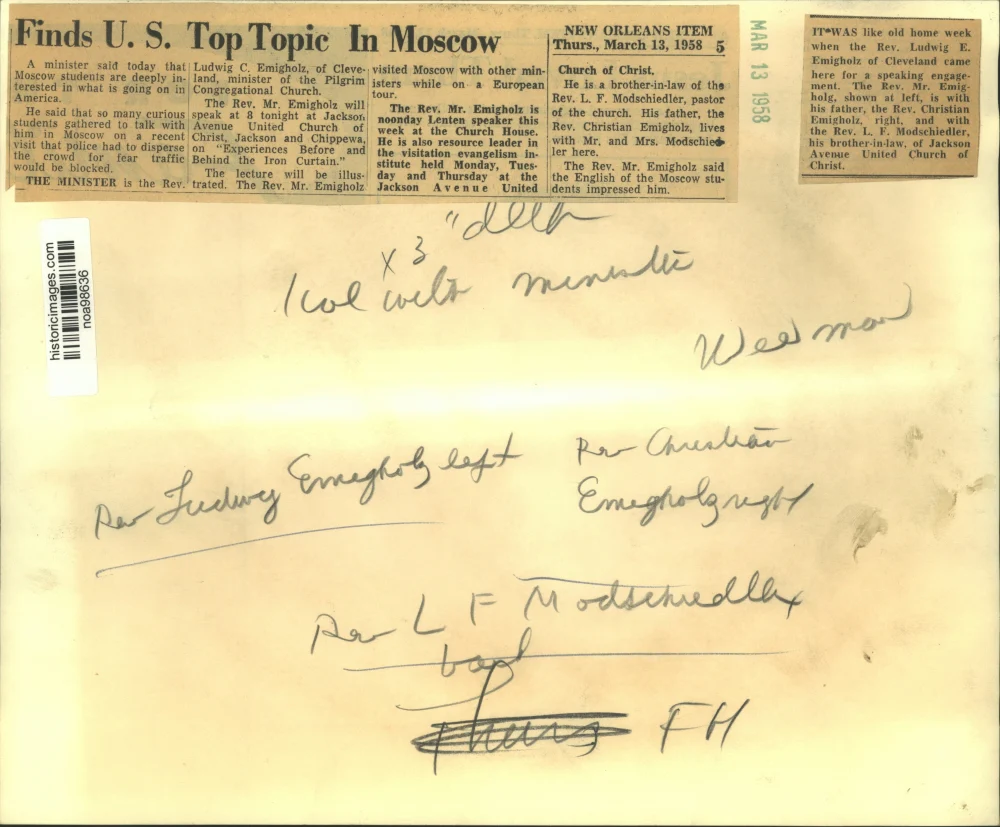 Finds U. S. Top Topic In Moscow
NEW ORLEANS ITEM
Thurs., March 13, 1958 5
A minister said today that
Moscow students are deeply in-
terested in what is going on in
America.
He said that so many curious
students gathered to talk with
him in Moscow on a recent
visit that police had to disperse
the crowd for fear traffic
would be blocked.
THE MINISTER is the Rev.
Ludwig C. Emigholz, of Cleve-
land, minister of the Pilgrim
Congregational Church.
The Rev. Mr. Emigholz will
speak at 8 tonight at Jackson
Avenue United Church of
Christ, Jackson and Chippewa,
on "Experiences Before and
Behind the Iron Curtain."
The lecture will be illus-
trated. The Rev. Mr. Emigholz
visited Moscow with other min-
isters while on a European
tour.
The Rev. Mr. Emigholz is
noonday Lenten speaker this
week at the Church House.
He is also resource leader in
the visitation evangelism in-
stitute held Monday, Tues-
day and Thursday at the
Jackson Avenue United
Church of Christ.
He is a brother-in-law of the
Rev. L. F. Modschiedler, pastor
of the church. His father, the
Rev. Christian Emigholz, lives
with Mr. and Mrs. Modschied-
ler here.
The Rev. Mr. Emigholz said
the English of the Moscow stu-
dents impressed him.
MAR 13 1958
IT WAS like old home week
when the Rev. Ludwig E.
Emigholz of Cleveland came
here for a speaking engage-
ment. The Rev. Mr. Emig-
holz, shown at left, is with
his father, the Rev. Christian
Emigholz, right, and with
the Rev. L. F. Modschiedler,
his brother-in-law, of Jackson
Avenue United Church of
Christ.
historicimages.com
noa98636
x 3 " deep
1 col with minister
Rev Ludwig Emegholz left
Rev Christian
Emegholz right
Rev L F Modschiedller
Thurs FH